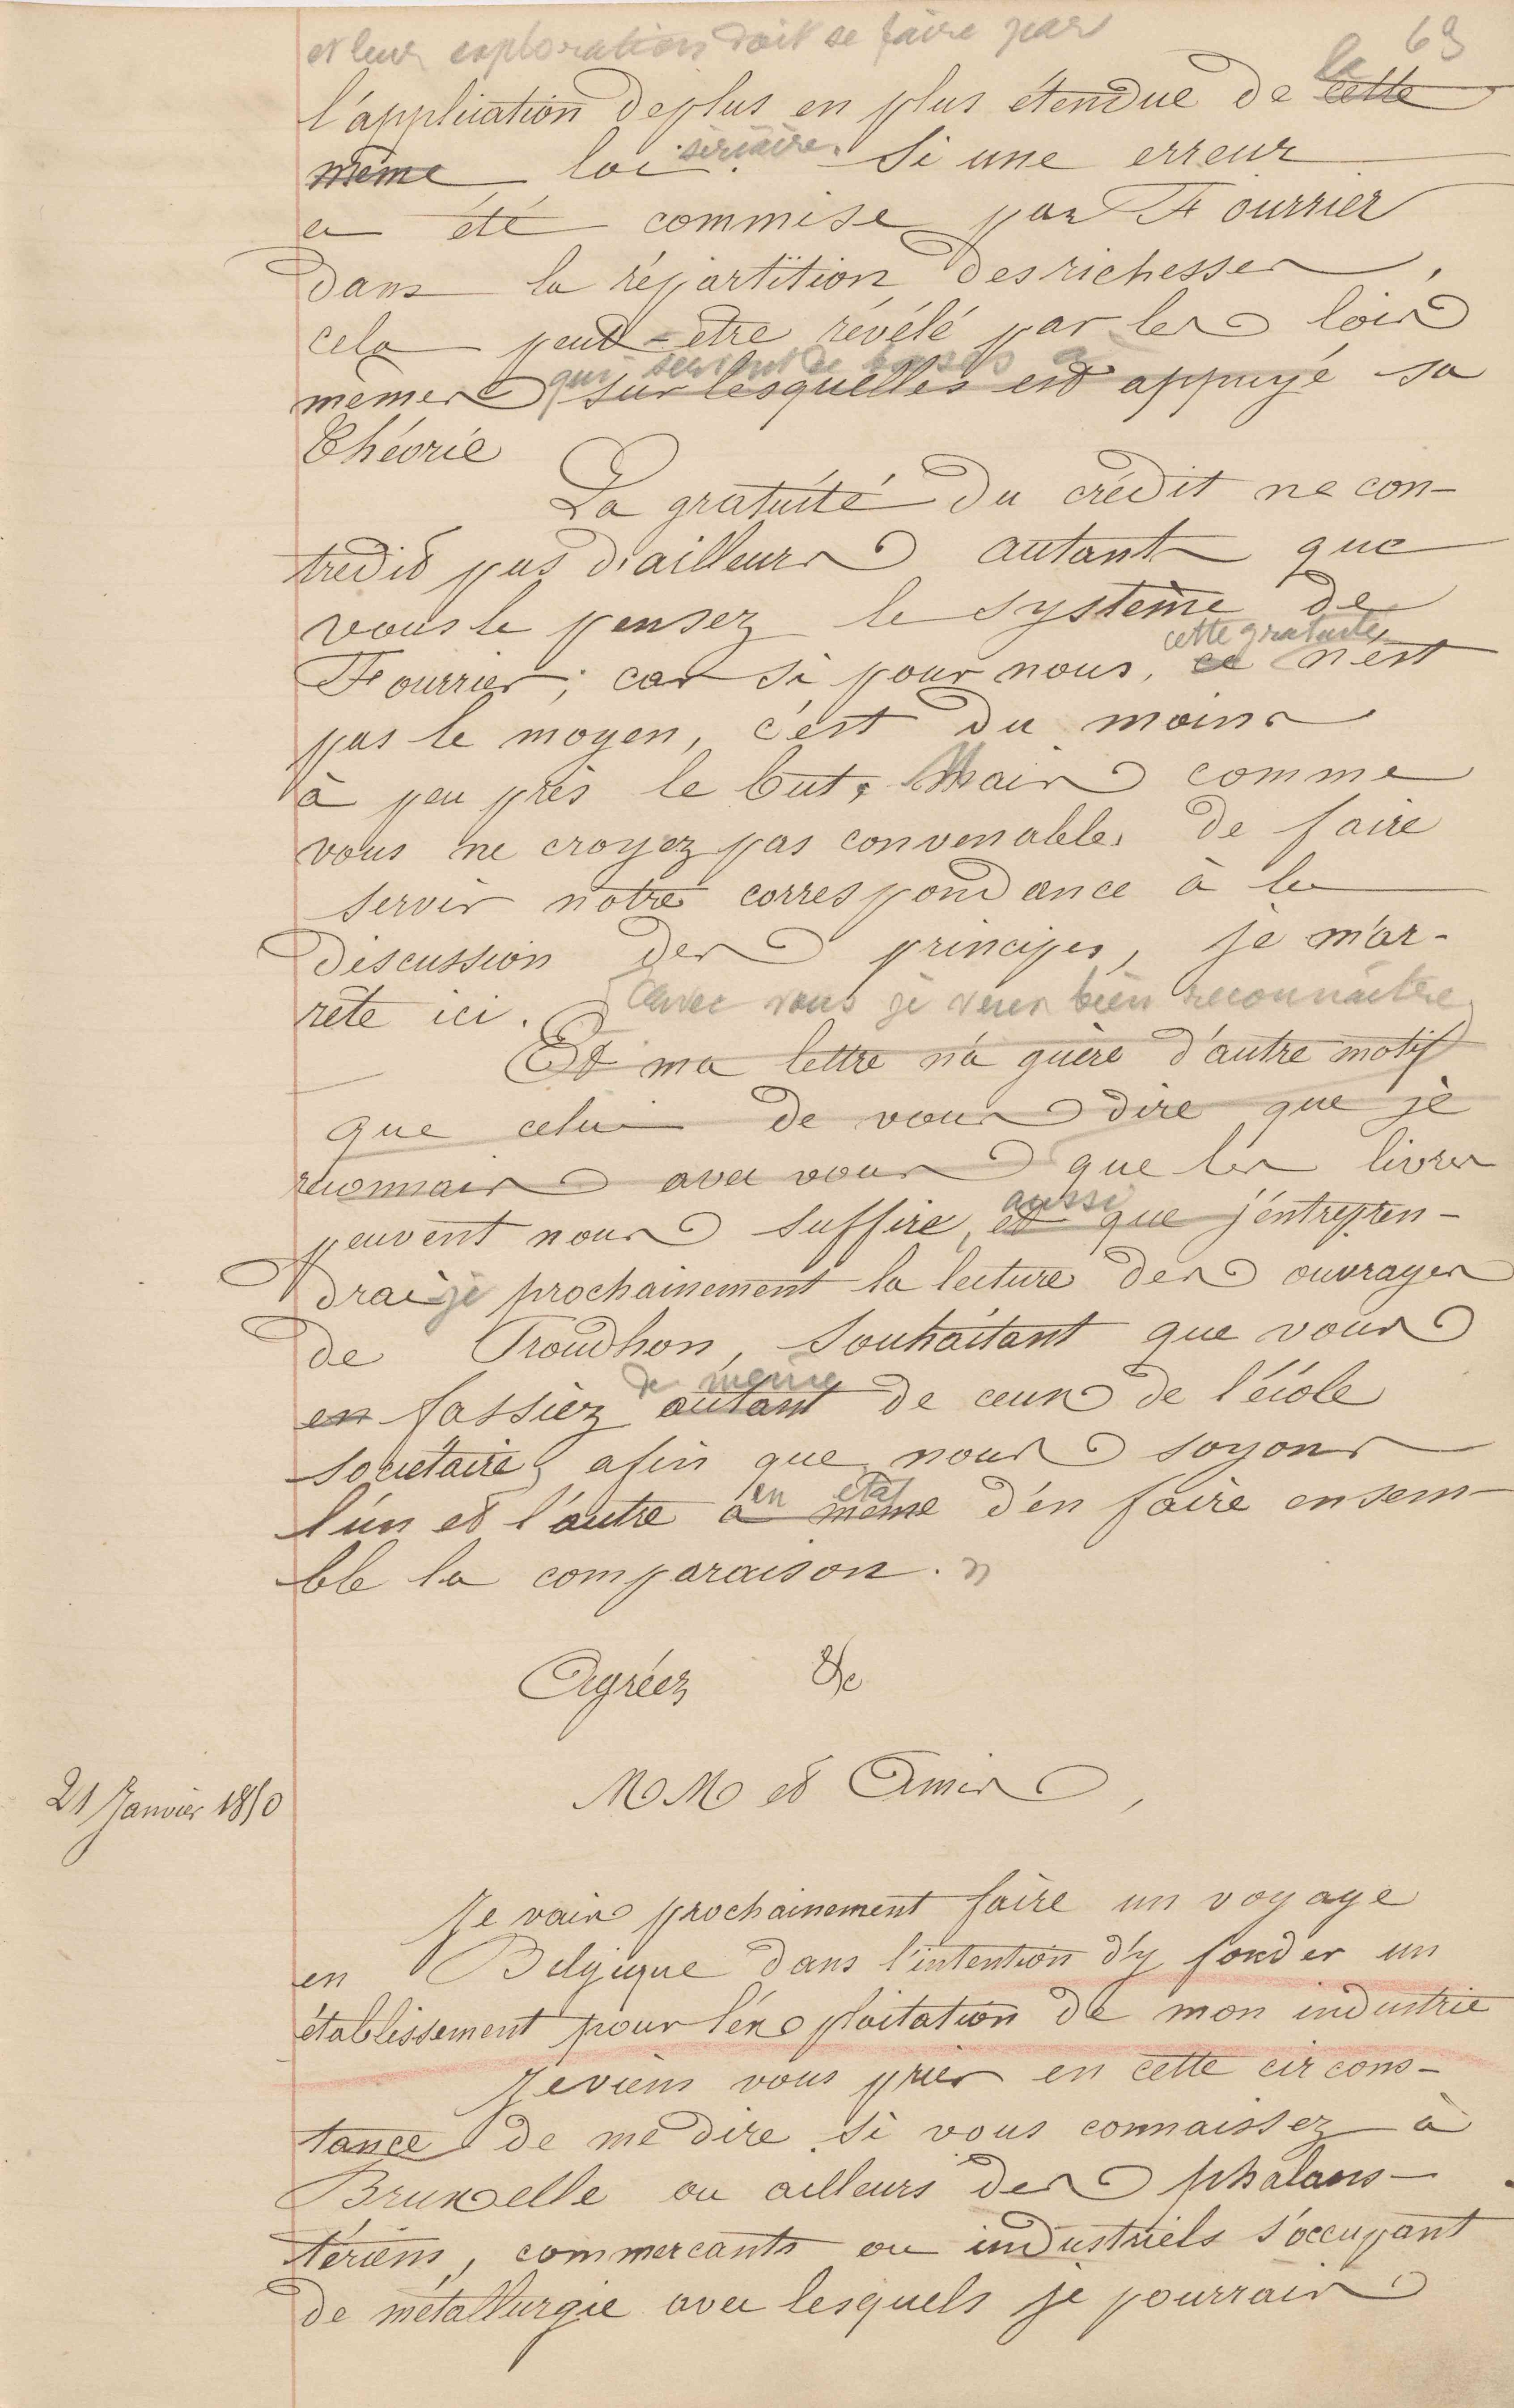 69
et leur exploration doit se faire par
l'application de plus en plus étendue de cette la
même loi sériaire. Si une erreur
a été commise par Fourrier
dans la répartition des richesses,
cela peut-être révélé par les lois
qui servent de bases à
mêmes sur lesquelles est appuyé sa
théorie
La gratuité du crédit ne con-
tredit pas d'ailleurs autant que
vous le pensez le système de
cette gratuité
Fourrier; car si pour nous, ce n'est
pas le moyen, c'est du moins
à peu près le but. Mais comme
vous ne croyez pas convenable de faire
servir notre correspondance à la
discussion des principes, je m'ar-
rête ici. Avec vous je veux bien reconnaître
Et ma lettre n'a guère d'autre motif
que celui de vous dire que je
reconnais avec vous que les livres
aussi
peuvent nous suffire, et que j'entrepren-
drai-je prochainement la lecture des ouvrages
de Proudhon, souhaitant que vous
de même
en fassiez autant de ceux de l'école
sociétaire, afin que nous soyons
en état
l'un et l'autre à même d'en faire ensem-
ble la comparaison. »
Agréez &c
21 Janvier 1850
MM et Amis,
Je vais prochainement faire un voyage
en Belgique dans l'intention d'y fonder un
établissement pour l'exploitation de mon industrie
Je viens vous prier en cette circons-
tance de me dire si vous connaissez à
Bruxelle ou ailleurs des phalans-
tériens, commercants ou industriels s'occupant
de métallurgie avec lesquels je pourrais